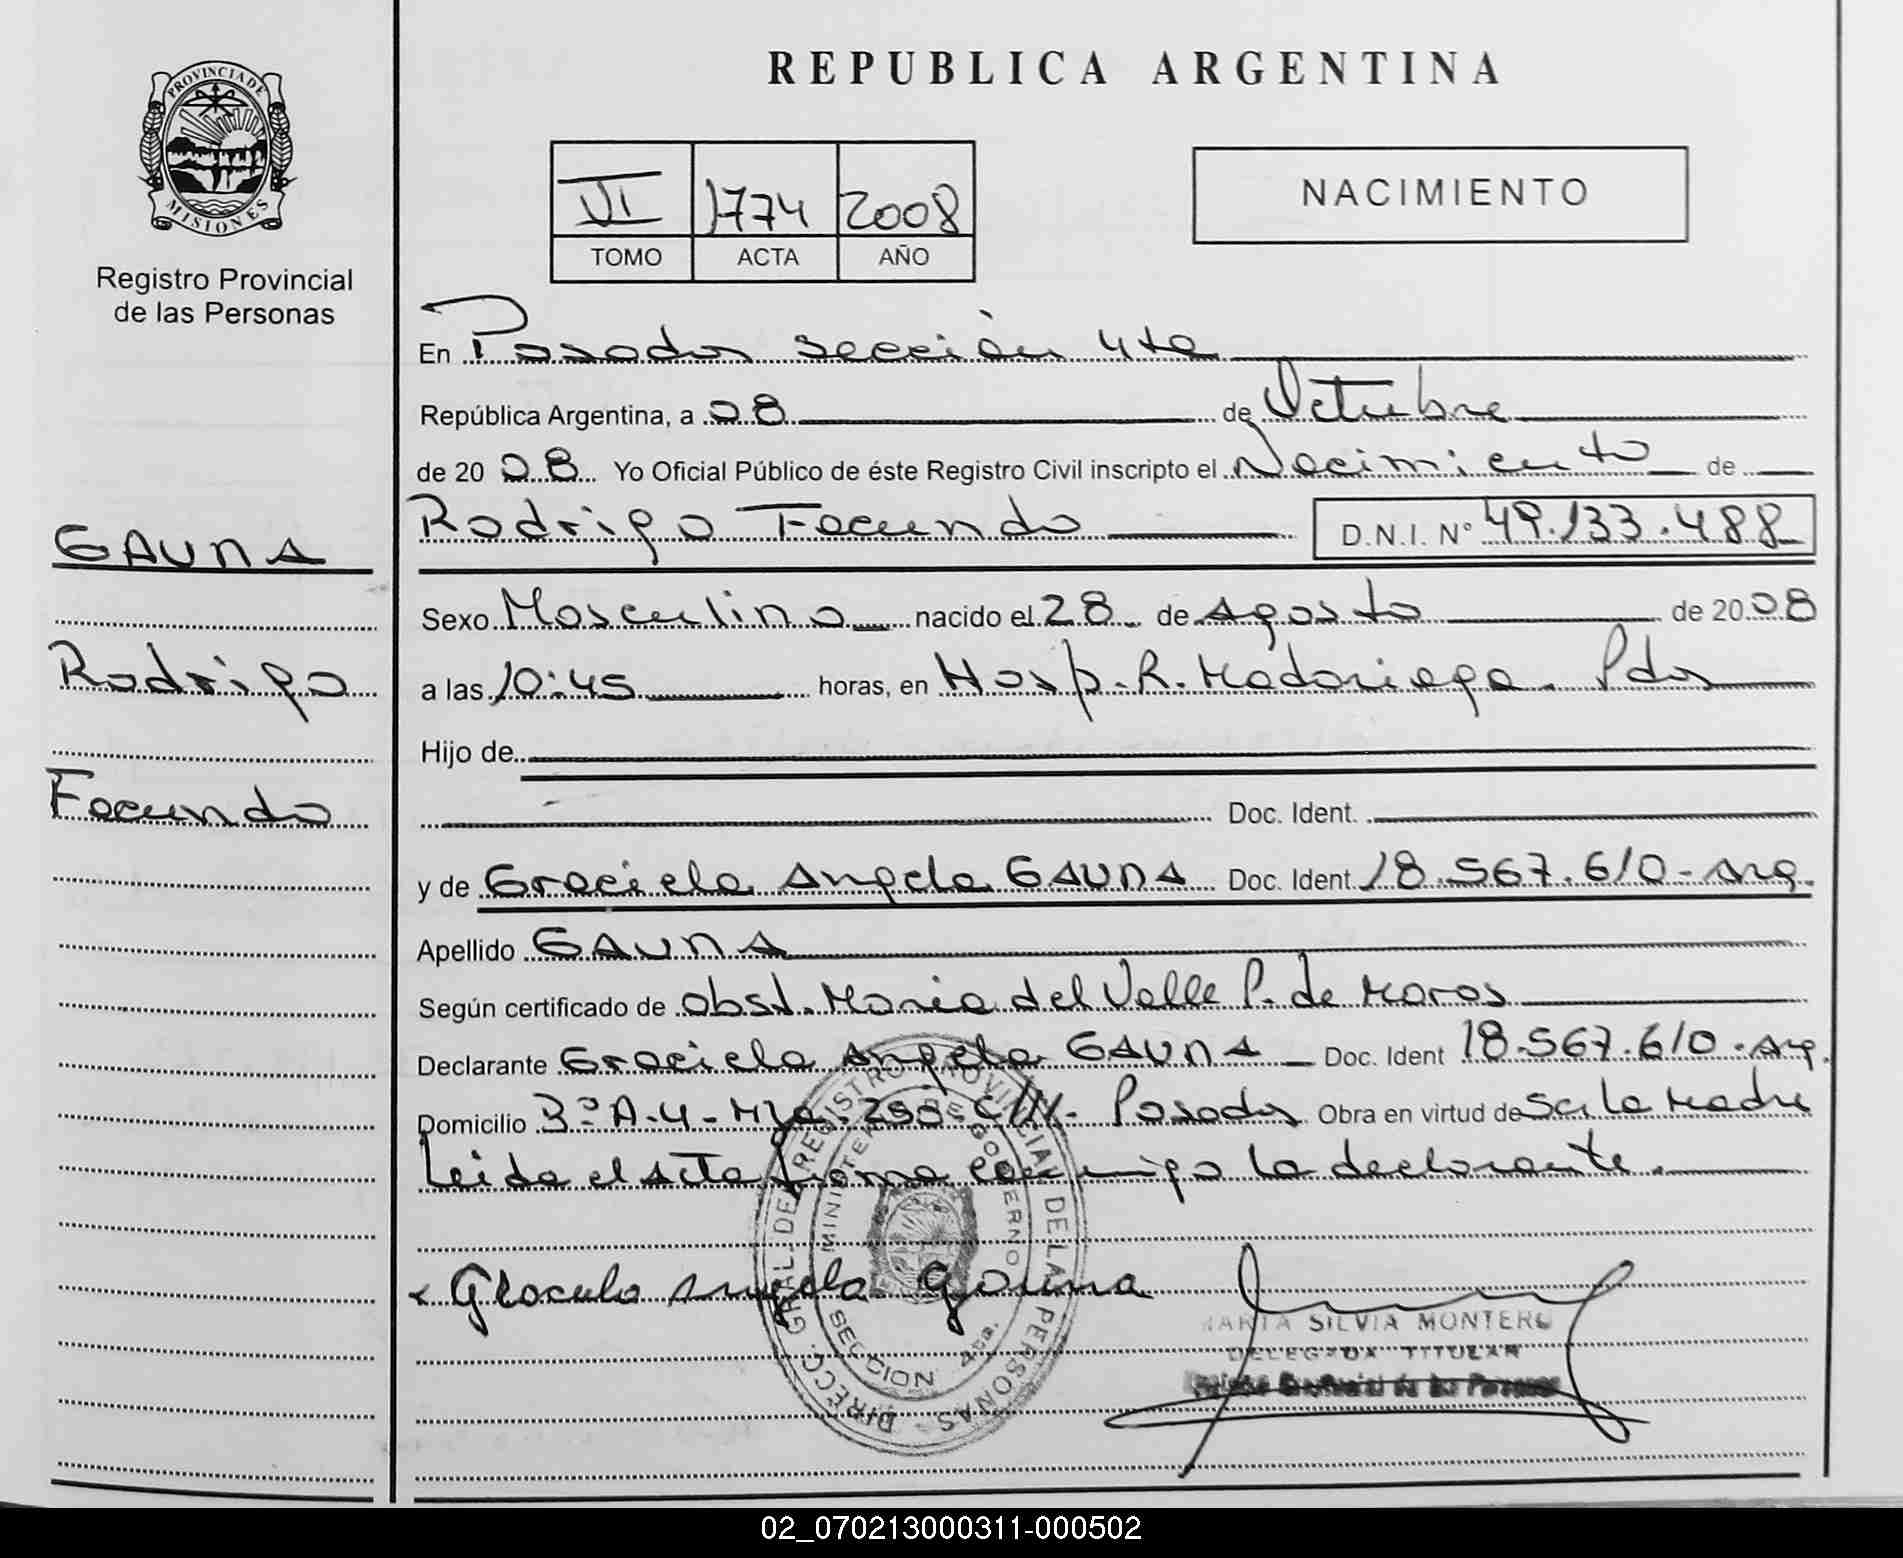 REPUBLICA ARGENTINA
PROVINCIA DE
MISIONES
Registro Provincial
de las Personas
VI 1774 2008
TOMO ACTA AÑO
NACIMIENTO
En Posadas sección 4ta
República Argentina, a 08 de Octubre
de 20 08 Yo Oficial Público de éste Registro Civil inscripto el Nacimiento de
Rodrigo Facundo D.N.I. N° 49.133.488
GAUNA
Rodrigo
Facundo
Sexo Masculino nacido el 28 de Agosto de 20 08
a las 10:45 horas, en Hosp. R. Madariaga. Pdas
Hijo de
Doc. Ident.
y de Graciela Angela GAUNA Doc. Ident 18.567.610-Arg.
Apellido GAUNA
Según certificado de obst. Maria del Valle P. de
Declarante Graciela Angela GAUNA Doc. Ident 18.567.610-Arg.
Domicilio Posadas Obra en virtud de la Madre
Leida el Acta firma conmigo la declarante.
Graciela Angela Gauna
DIRECC. GRAL. DEL REGISTRO PROVINCIAL DE LAS PERSONAS
MINISTERIO DE GOBIERNO
SECCION 4ta.
MARIA SILVIA MONTERO
DELEGADA TITULAR
02_070213000311-000502